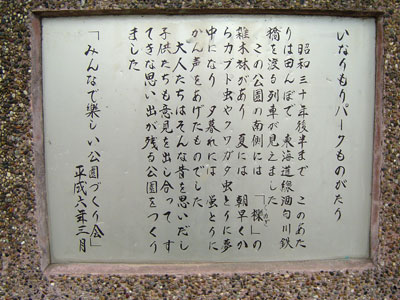 いなりもりパークものがたり
昭和三十年後半まで このあた
りは田んぼで 東海道線酒匂川鉄
橋を渡る列車が見えました
この公園の南側には 「檪」の
雑木林があり 夏には 朝早くか
らカブト虫やクワガタ虫とりに夢
中になり 夕暮れには 蛍とりに
がん声をあげたものでした
大人たちはそんな昔を思いだし
子供たちも意見を出し合って す
てきな思い出が残る公園をつくり
ました
「みんなで楽しい公園づくり会」
平成六年三月